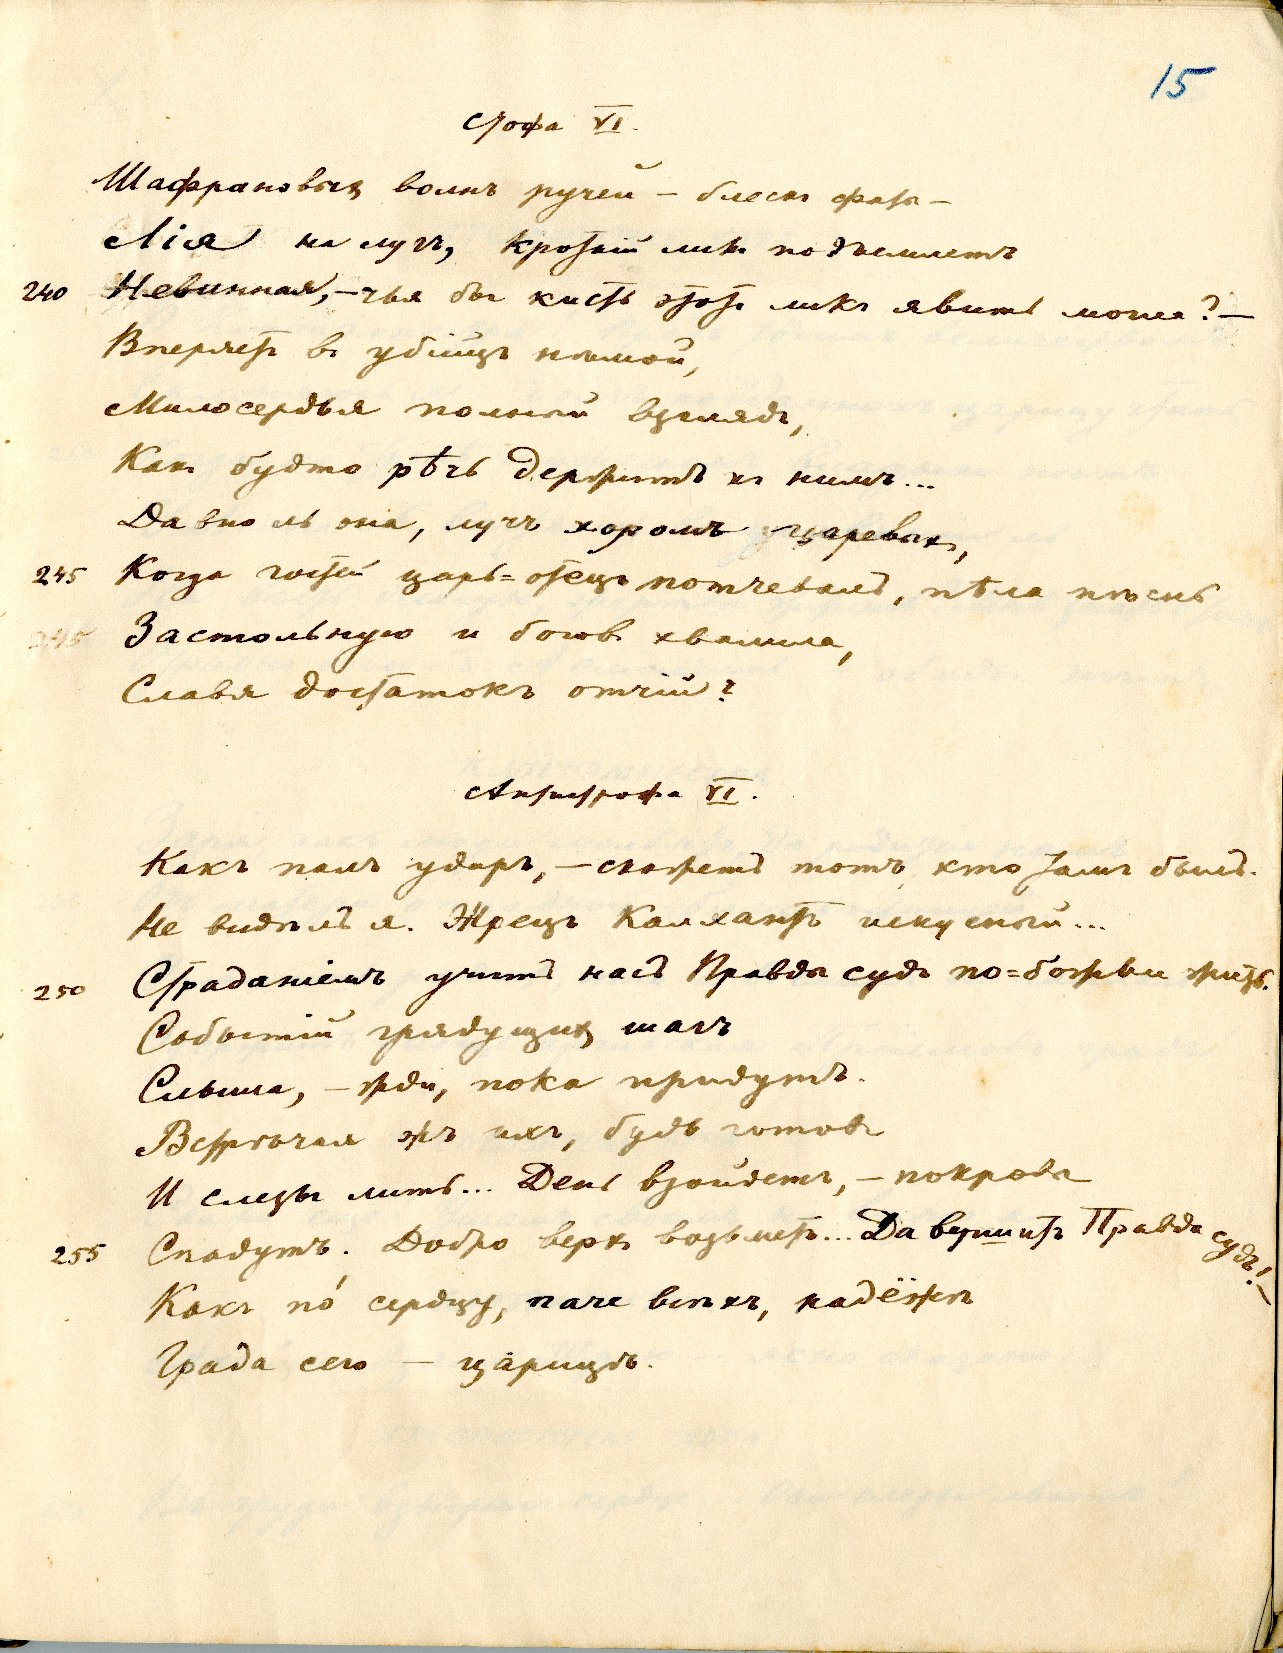 15
Строфа VI.
Шафрановыхъ волнъ ручей – блескъ фаты –
Лія на лугъ, кроткій ликъ подъемлетъ
240 Невинная, – чья бы кисть этотъ ликъ явить могла? –
Вперяетъ въ убійцъ нѣмой,
Милосердья полный взглядъ,
Какъ будто рѣчь держитъ къ нимъ...
Давно ль она, лучъ хоромъ царевыхъ,
245 Когда гостей царь=отецъ потчевалъ, пѣла пѣснь
245 Застольную и боговъ хвалила,
Славя достатокъ отчій?
Антистрофа VI.
Какъ палъ ударъ, – скажетъ тотъ, кто тамъ былъ.
Не видѣлъ я. Жрецъ Калхантъ искусный...
250 Страданіемъ учитъ насъ Правды судъ по=божьи жить.
Событій грядущихъ шагъ
Слыша, – жди, пока придутъ.
Встрѣчая жъ ихъ, будь готовъ
И слезы лить... День взойдетъ, – покровы
255 Спадутъ. Добро верхъ возьметъ... Да вершитъ Правда судъ! –
Какъ по́ сердцу, паче всѣхъ, надёжѣ
Града сего – царицѣ.